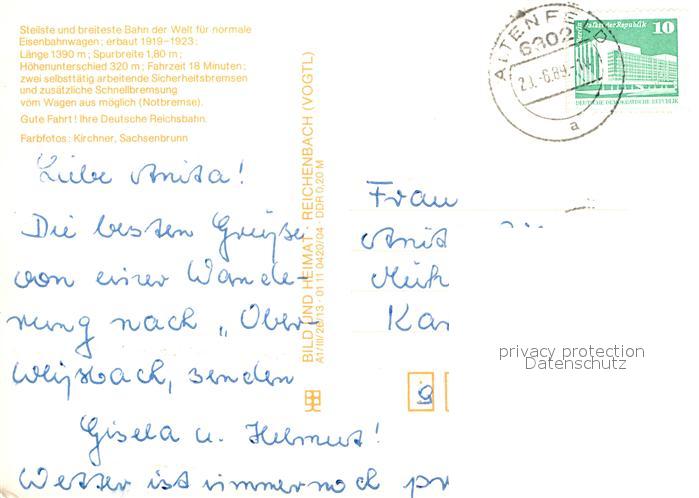 Steilste und breiteste Bahn der Welt für normale
Eisenbahnwagen; erbaut 1919–1923;
Länge 1390 m; Spurbreite 1,80 m;
Höhenunterschied 320 m; Fahrzeit 18 Minuten;
zwei selbsttätig arbeitende Sicherheitsbremsen
und zusätzliche Schnellbremsung
vom Wagen aus möglich (Notbremse).
Gute Fahrt! Ihre Deutsche Reichsbahn.
Farbfotos: Kirchner, Sachsenbrunn
Liebe Anita!
Die besten Grüße
von einer Wande-
rung nach „Ober-
weißbach, senden
Gisela u. Helmut!
Wetter ist immer noch pr
BILD UND HEIMAT REICHENBACH (VOGTL)
A1/III/26/13 · 01 11 0420/04 · DDR 0,20 M
ALTENFELD
6302
a
Palast der Republik
10
DEUTSCHE DEMOKRATISCHE REPUBLIK
Frau
Anit
Kar
privacy protection
Datenschutz